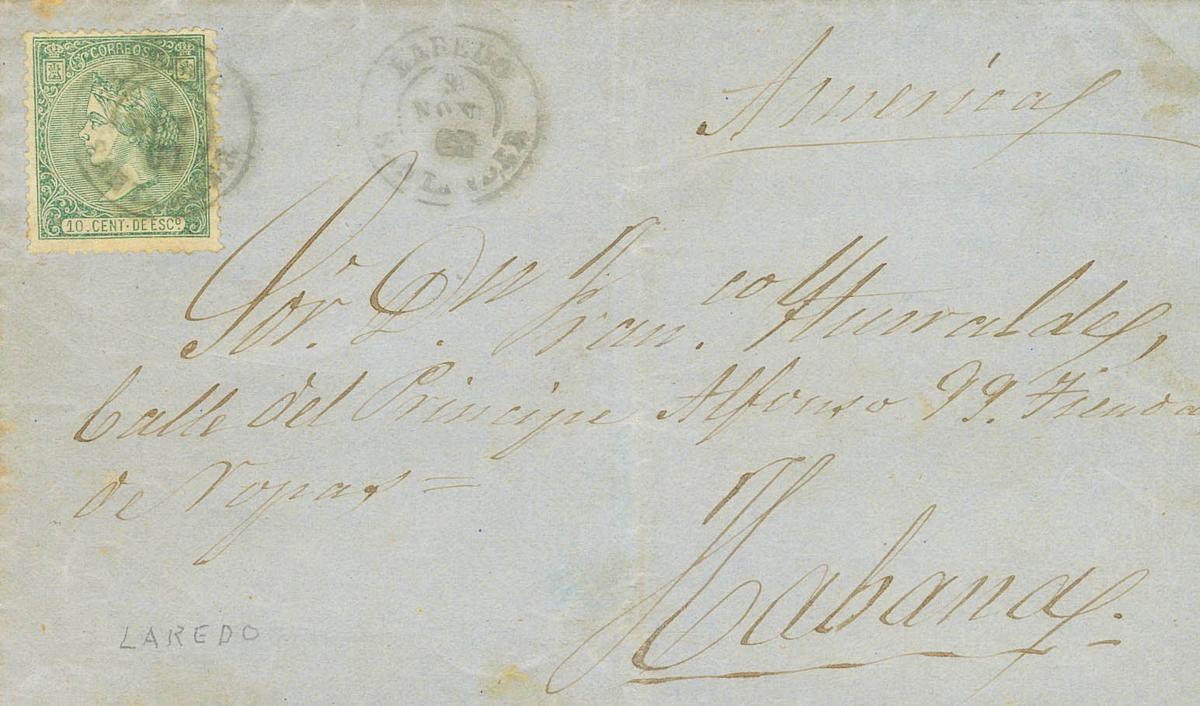 CORREOS
10. CENT. DE ESCº
LAREDO
NOV
America
Sor. Dn Franco. Iturralde,
Calle del Principe Alfonso 99. Tienda
de ropas =
Habana.
LAREDO